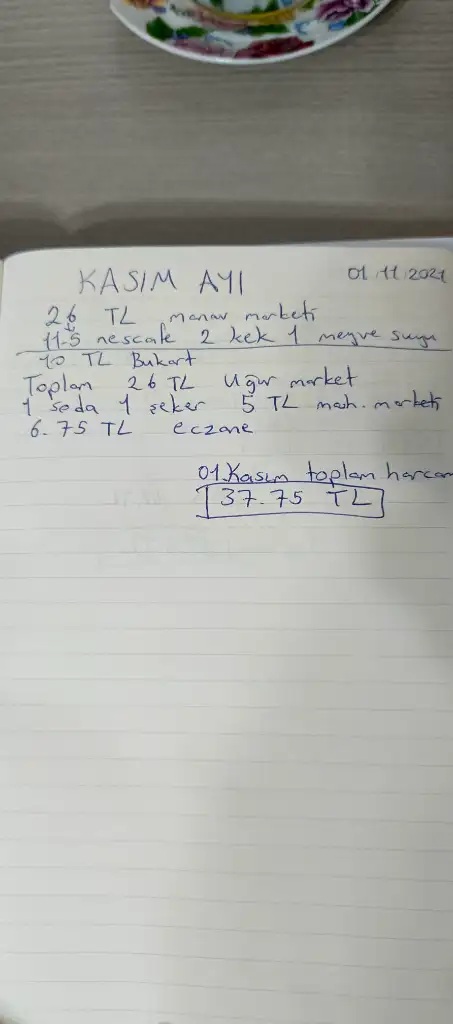 KASIM AYI
01 11 2021
26 TL manav marketi
11.5 nescafe 2 kek 1 meyve suyu
10 TL Bukart
Toplam 26 TL Uğur market
1 soda 1 şeker 5 TL mah. marketi
6.75 TL eczane
01 Kasım toplam harcam
37.75 TL